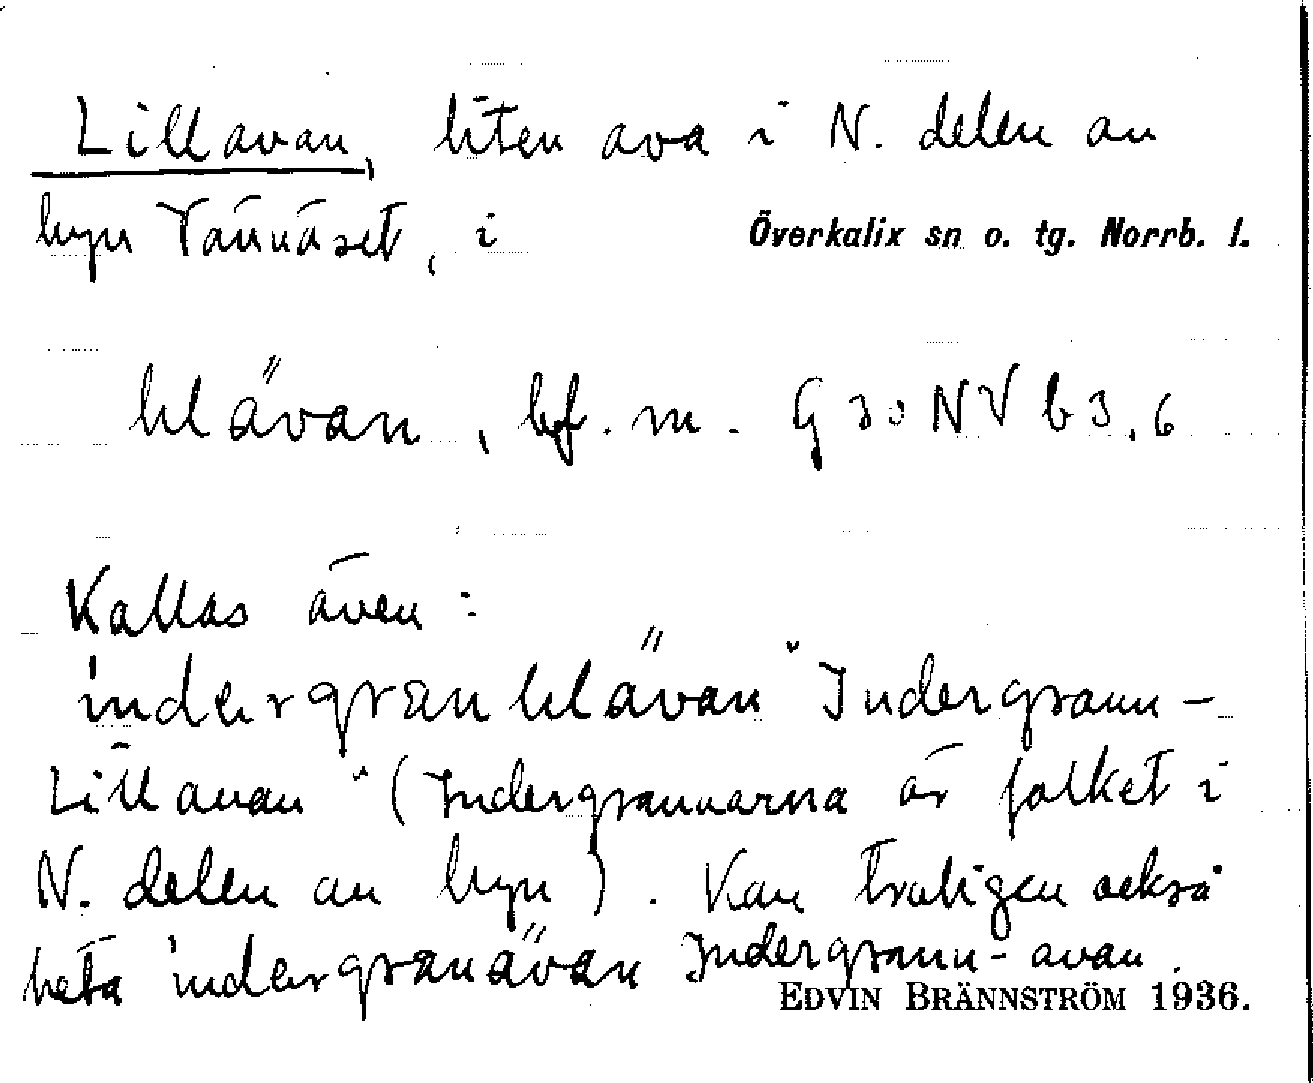 Lillavan, liten ava i N. delen av
byn Tännäset, i Överkalix sn o. tg. Norrb. l.
lɩlävan, bf. m. G30NVb3,6
Kallas även:
ˈindergranlɩlävan "Indergrann-
Lillavan" (Indergrannarna är folket i
N. delen av byn). Kan troligen också
heta ˈindergranävan Indergrann-avan.
EDVIN BRÄNNSTRÖM 1936.